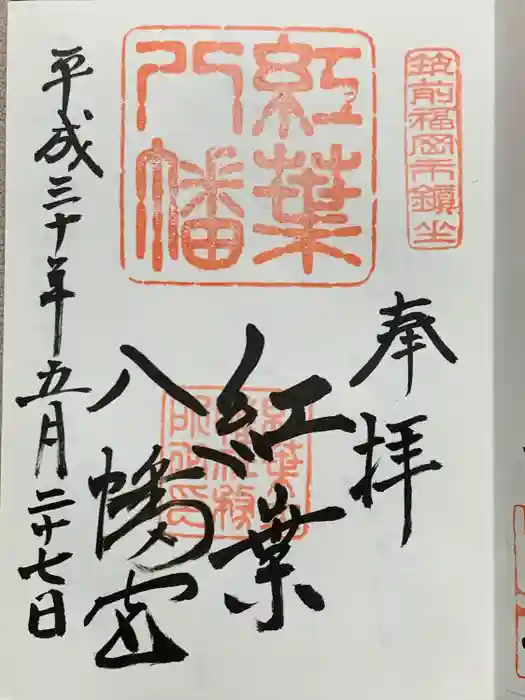 筑前福岡市鎮坐
奉拝
紅葉
八幡
紅葉
八幡宮
平成三十年五月二十七日